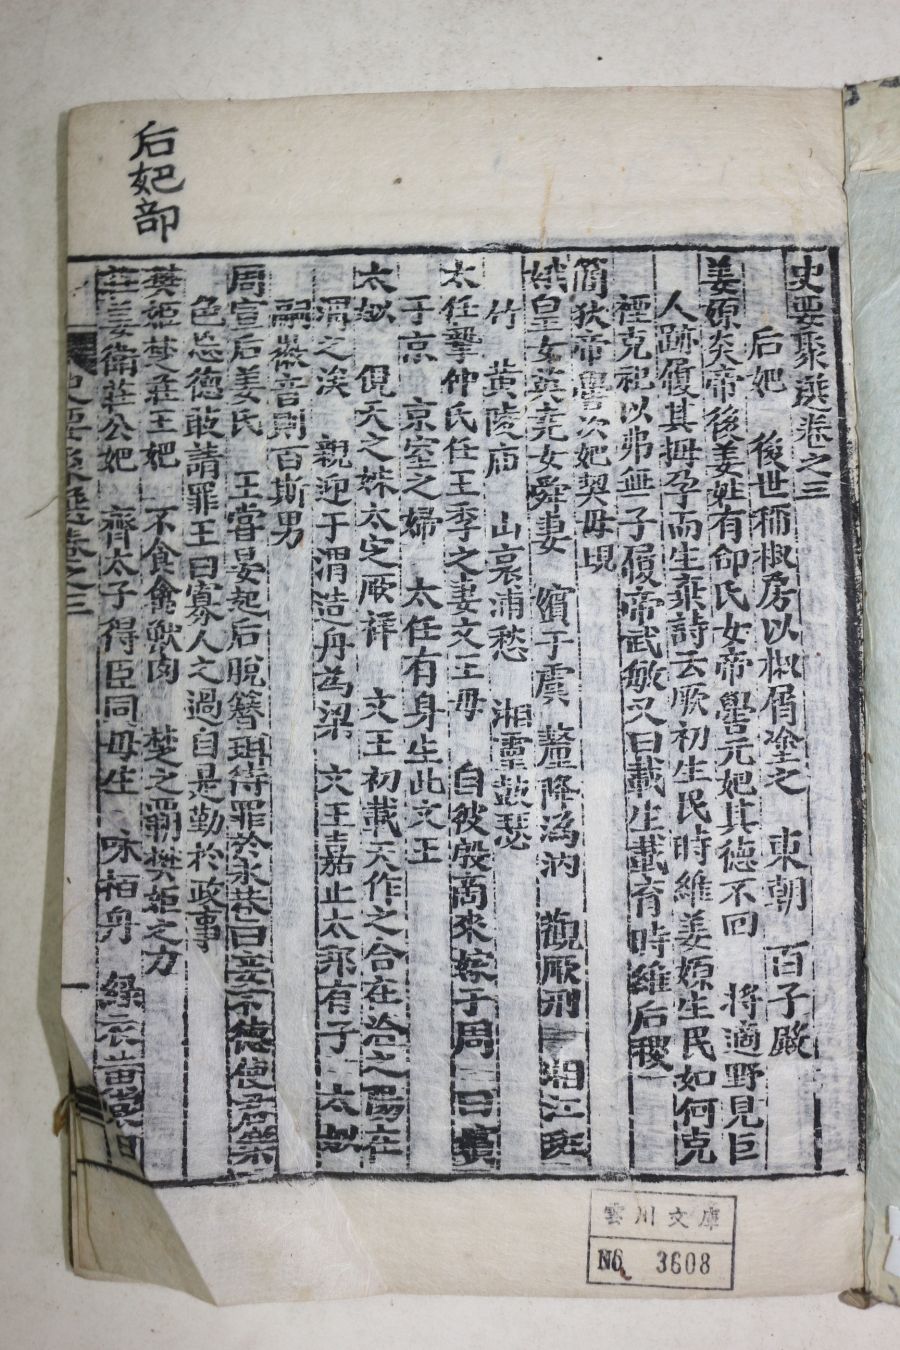 后妃部
史要聚選卷之三
后妃 後世稱椒房以椒屑塗之 東朝 百子殿
姜嫄炎帝後姜姓有邰氏女帝嚳元妃其德不回 將適野見巨
人跡履其拇孕而生棄詩云厥初生民時維姜嫄生民如何克
禋克祀以弗無子履帝武敏又曰載生載育時維后稷
簡狄帝嚳次妃契母
娥皇女英堯女舜妻 嬪于虞 釐降溈汭 觀厥刑 湘江班
竹 黃陵庙 山哀浦愁 湘靈鼓瑟
太任摯仲氏任王季之妻文王母 自彼殷商來嫁于周 曰嬪
于京 京室之婦 太任有身生此文王
太姒 俔天之妹太定厥祥 文王初載天作之合在洽之陽在
渭之涘 親迎于渭造舟為梁 文王嘉止太邦有子 太姒
嗣徽音則百斯男
周宣后姜氏 王嘗晏起后脫簪珥待罪於永巷曰妾不德使君樂
色忘德敢請罪王曰寡人之過自是勤於政事
樊姬楚莊王妃 不食禽獸肉 楚之霸樊姬之力
莊姜衛莊公妃 齊太子得臣同母生 咏栢舟 綠衣
史要聚選卷之三
一
雲川文庫
No. 3608